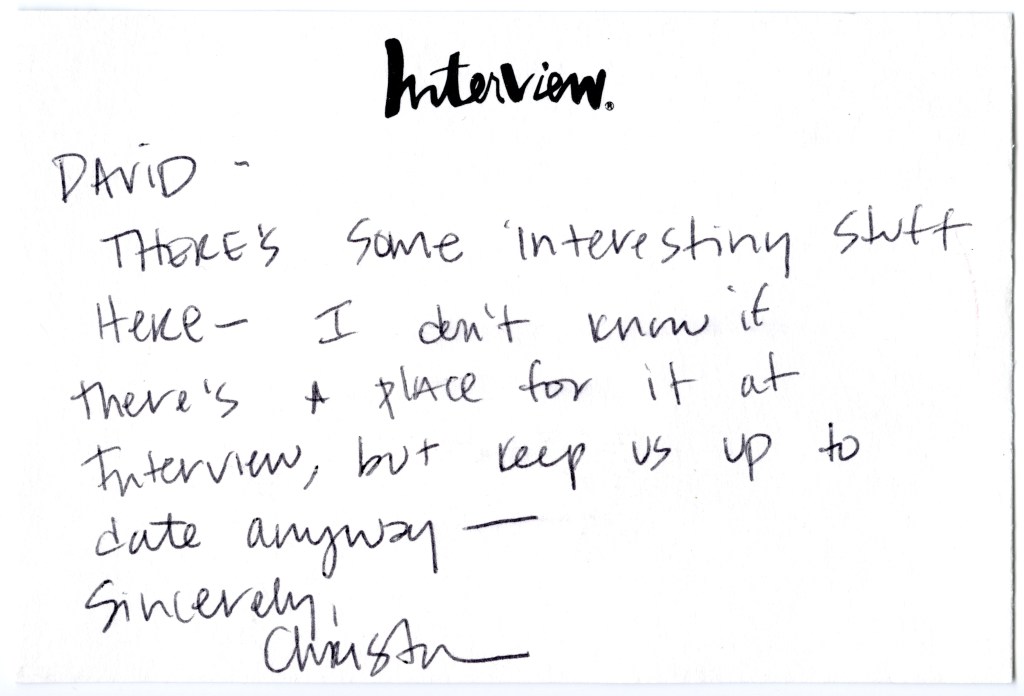 Interview®
DAViD -
THERE'S some interesting stuff
HERE— I don't know if
there's A plACE for it at
Interview, but keep us up to
date anyway —
Sincerely,